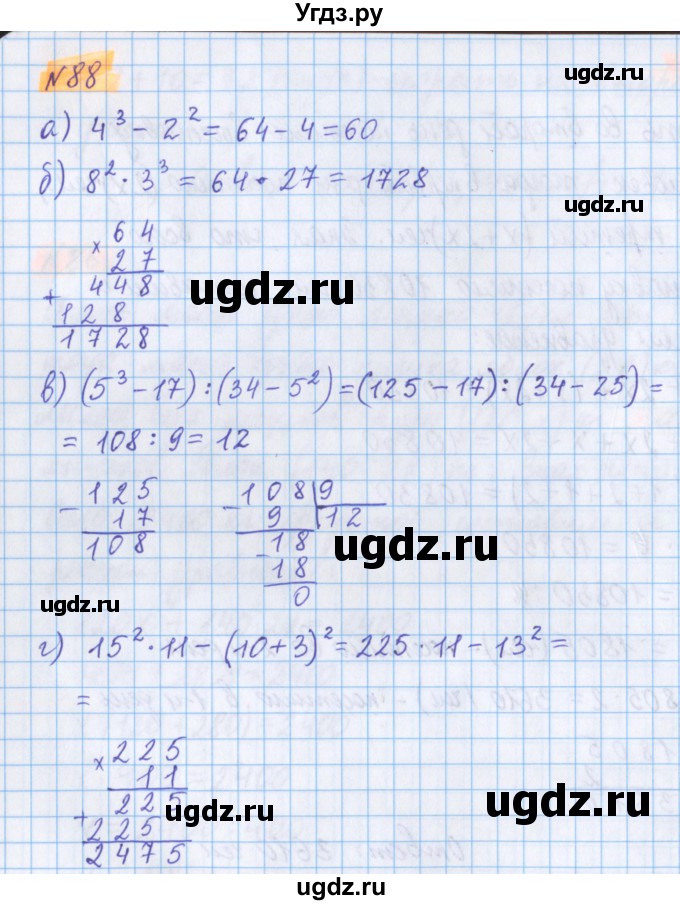 Угдз.ру
№88
ugdz.ru
а) 4³ - 2² = 64 - 4 = 60
б) 8² · 3³ = 64 · 27 = 1728
ugdz.ru
× 64
27
448
+ 128
1728
ugdz.ru
в) (5³ - 17) : (34 - 5²) = (125 - 17) : (34 - 25) =
= 108 : 9 = 12
- 125
17
108
- 108 9
9 12
18
- 18
0
ugdz.ru
ugdz.ru
г) 15² · 11 - (10 + 3)² = 225 · 11 - 13² =
=
× 225
11
225
+ 225
2475
ugdz.ru
ugdz.ru
ugdz.ru